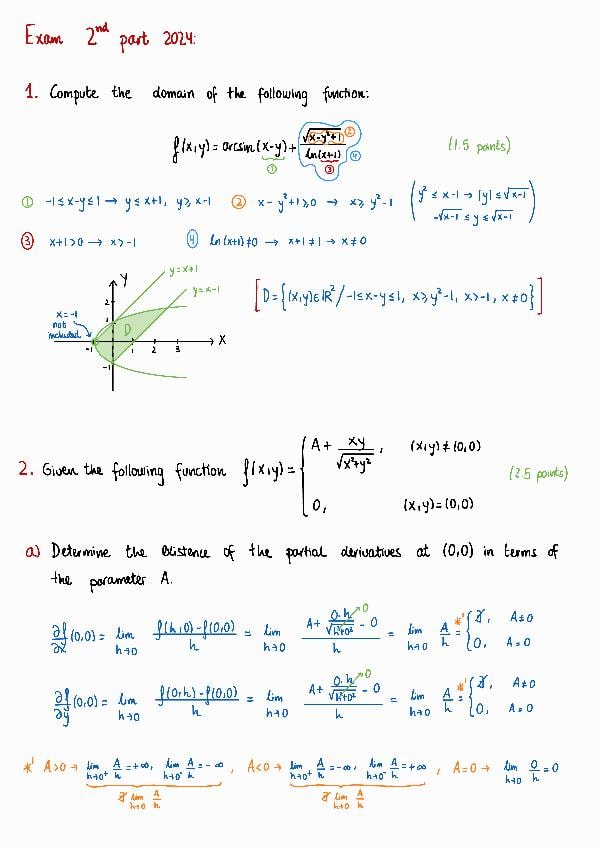 Exam 2nd part 2024:
1. Compute the domain of the following function:
f(x,y) = arcsin(x-y) + √(x-y²+1) / ln(x+1) (1.5 points)
① ② ③ ④
① -1≤x-y≤1 → y≤x+1, y≥x-1 ② x-y²+1≥0 → x≥y²-1 (y²≤x-1 → |y|≤√(x-1)
-√(x-1) ≤ y ≤ √(x-1))
③ x+1>0 → x>-1 ④ ln(x+1)≠0 → x+1≠1 → x≠0
y=x+1
y
y=x-1
[D={(x,y)∈ℝ² / -1≤x-y≤1, x≥y²-1, x>-1, x≠0}]
2
x=-1
not
included
1
D
x
-1 1 2 3
-1
2. Given the following function f(x,y) = { A + xy/√(x²+y²), (x,y)≠(0,0)
0, (x,y)=(0,0)
(2.5 points)
a) Determine the existence of the partial derivatives at (0,0) in terms of
the parameter A.
∂f/∂x (0,0) = lim h→0 (f(h,0)-f(0,0))/h = lim h→0 (A + 0·h/√(h²+0²) →0 - 0)/h = lim h→0 A/h =*¹ { ∄, A≠0
0, A=0
∂f/∂y (0,0) = lim h→0 (f(0,h)-f(0,0))/h = lim h→0 (A + 0·h/√(h²+0²) →0 - 0)/h = lim h→0 A/h =*¹ { ∄, A≠0
0, A=0
*¹ A>0 → lim h→0⁺ A/h = +∞, lim h→0⁻ A/h = -∞, A<0 → lim h→0⁺ A/h = -∞, lim h→0⁻ A/h = +∞, A=0 → lim h→0 0/h = 0
∄ lim h→0 A/h ∄ lim h→0 A/h